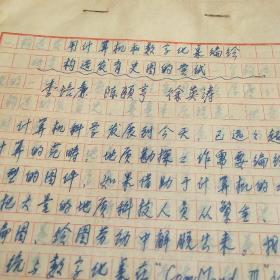 用计算机和数字化表编绘
构造发育史图的尝试
李培廉 陈颐亨 徐英涛
计算机科学发展到今天 已远远超
计算的范畴 地质勘探工作需要编绘
型的图件，如果借助于计算机的
把大量的地质科技人员从繁重
编图、绘图劳动中解脱出来。我
统与数字化表在